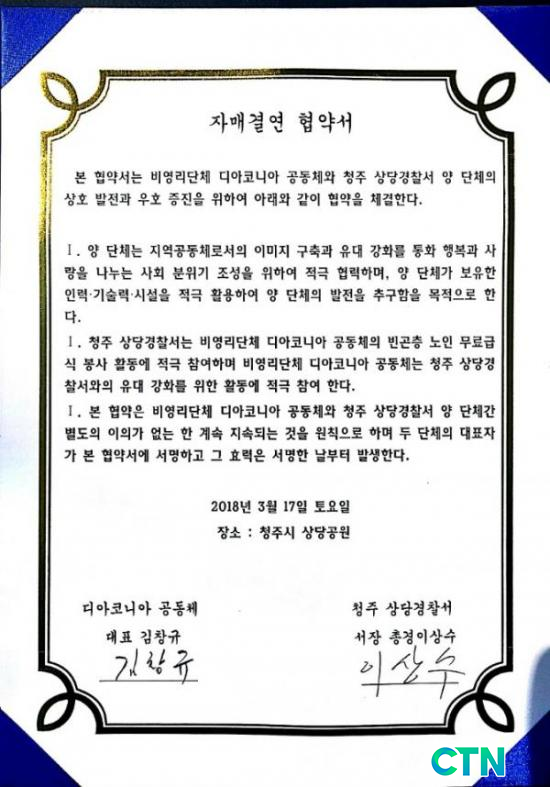 자매결연 협약서
본 협약서는 비영리단체 디아코니아 공동체와 청주 상당경찰서 양 단체의
상호 발전과 우호 증진을 위하여 아래와 같이 협약을 체결한다.
Ⅰ. 양 단체는 지역공동체로서의 이미지 구축과 유대 강화를 통화 행복과 사
랑을 나누는 사회 분위기 조성을 위하여 적극 협력하며, 양 단체가 보유한
인력·기술력·시설을 적극 활용하여 양 단체의 발전을 추구함을 목적으로 한
다.
Ⅰ. 청주 상당경찰서는 비영리단체 디아코니아 공동체의 빈곤층 노인 무료급
식 봉사 활동에 적극 참여하며 비영리단체 디아코니아 공동체는 청주 상당경
찰서와의 유대 강화를 위한 활동에 적극 참여 한다.
Ⅰ. 본 협약은 비영리단체 디아코니아 공동체와 청주 상당경찰서 양 단체간
별도의 이의가 없는 한 계속 지속되는 것을 원칙으로 하며 두 단체의 대표자
가 본 협약서에 서명하고 그 효력은 서명한 날부터 발생한다.
2018년 3월 17일 토요일
장소 : 청주시 상당공원
디아코니아 공동체 청주 상당경찰서
대표 김창규 서장 총경이상수
김창규 이상수
CTN